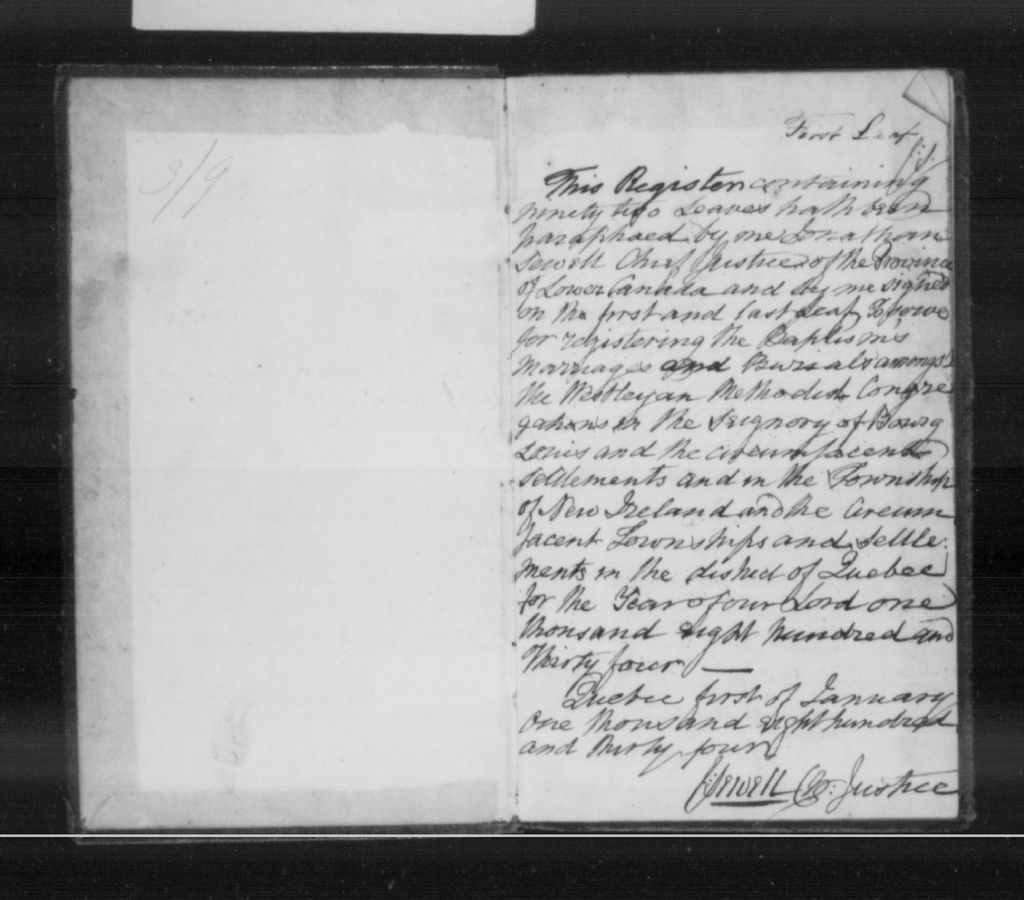 3/9
First Leaf
J:S.
This Register containing
ninety two Leaves hath been
paraphaed by me Jonathan
Sewell Chief Justice of the Province
of Lower Canada and by me signed
on the first and last Leaf, To serve
for registering the Baptisms
Marriages and Burials amongst
the Wesleyan Methodist Congre
gations in the Seignory of Bourg
Louis and the circumjacent
Settlements and in the Township
of New Ireland and the Circum
jacent Townships and Settle-
ments in the district of Quebec
for the Year of our Lord one
thousand eight hundred and
thirty four —
Quebec first of January
One thousand eight hundred
and thirty four
J: Sewell Ch: Justice